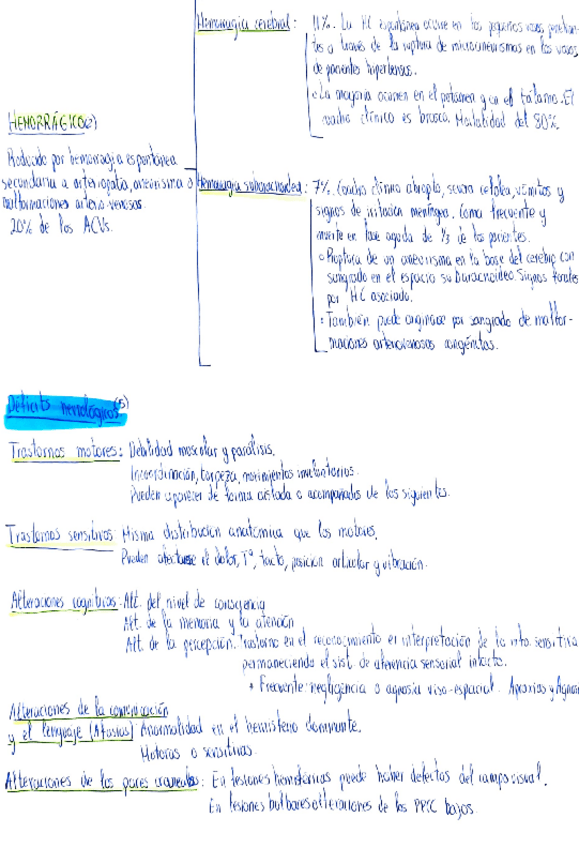 Hemorragia cerebral: 11%. La HC espontánea ocurre en los pequeños vasos perforan-
tes a través de la ruptura de microaneurismas en los vasos
de pacientes hipertensos.
La mayoría ocurren en el putamen y en el tálamo. El
cuadro clínico es brusco. Mortalidad del 80%.
HEMORRÁGICO(2)
Producido por hemorragia espontánea
secundaria a arteriopatía, aneurisma o
malformaciones arterio-venosas.
20% de los ACVs.
Hemorragia subaracnoidea: 7%. Cuadro clínico abrupto, severa cefalea, vómitos y
signos de irritación meníngea. Coma frecuente y
muerte en fase aguda de 1/3 de los pacientes.
Ruptura de un aneurisma en la base del cerebro con
sangrado en el espacio subaracnoideo. Signos focales
por HC asociada.
También puede originarse por sangrado de malfor-
maciones arteriovenosas congénitas.
Déficits neurológicos(5)
Trastornos motores: Debilidad muscular y parálisis.
Incoordinación, torpeza, movimientos involuntarios.
Pueden aparecer de forma aislada o acompañados de los siguientes.
Trastornos sensitivos: Misma distribución anatómica que los motores.
Pueden afectarse el dolor, Tª, tacto, posición articular y vibración.
Alteraciones cognitivas: Alt. del nivel de consciencia
Alt. de la memoria y la atención
Alt. de la percepción. Trastorno en el reconocimiento e interpretación de la info. sensitiva
permaneciendo el sist. de aferencia sensorial intacto.
+ Frecuente: negligencia o agnosia viso-espacial. Apraxias y Agnosias
Alteraciones de la comunicación
y el lenguaje (Afasias): Anormalidad en el hemisferio dominante.
Motoras o sensitivas.
Alteraciones de los pares craneales: En lesiones hemisféricas puede haber defectos del campo visual.
En lesiones bulbares alteraciones de los PPCC bajos.